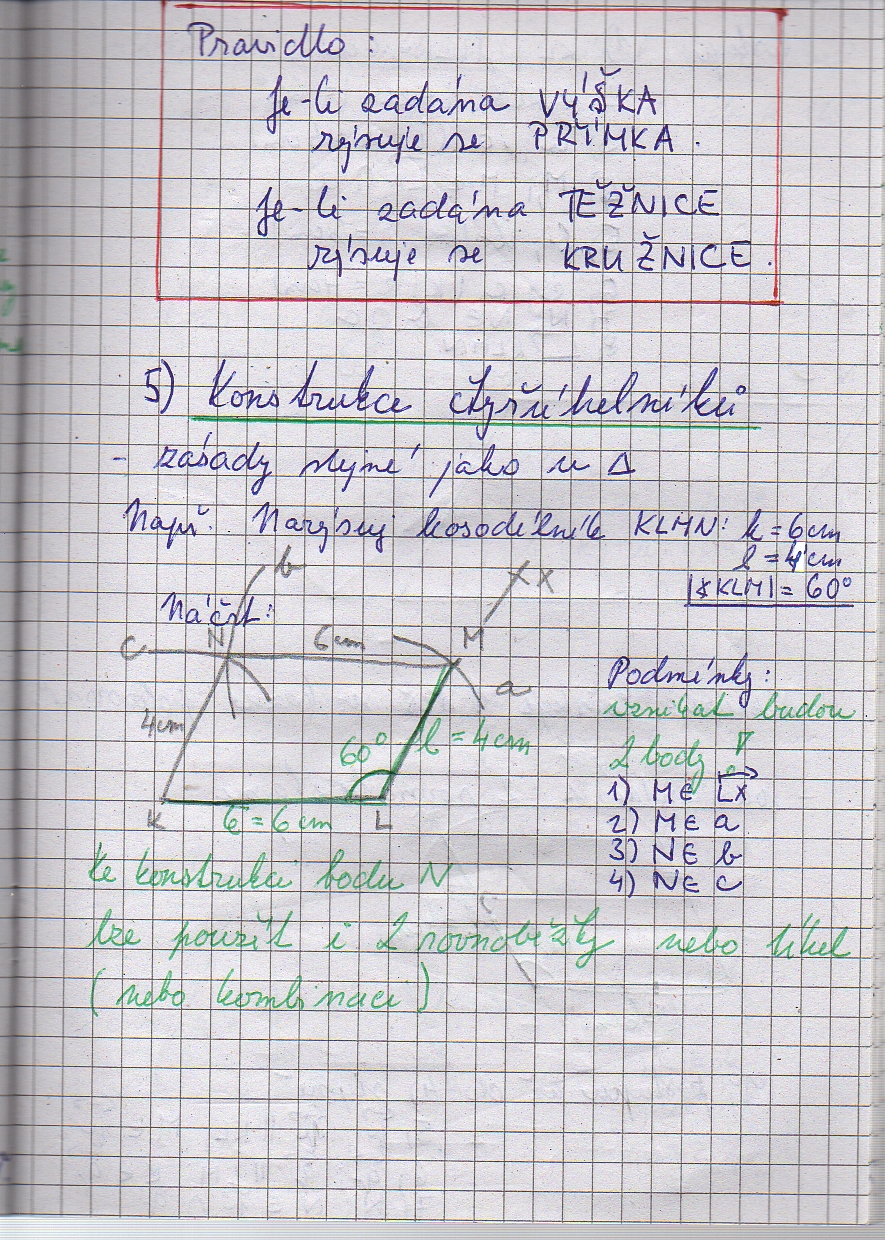 Pravidlo:
Je-li zadána VÝŠKA
rýsuje se PŘÍMKA.
Je-li zadána TĚŽNICE
rýsuje se KRUŽNICE.
5) Konstrukce čtyřúhelníků
- zásady stejné jako u Δ
Např. Narýsuj kosodélník KLMN: k = 6cm
l = 4cm
|∢KLM| = 60°
Náčrt:
b
X
C N 6cm M
a
4cm 60° l = 4cm
K k = 6cm L
Podmínky:
vznikat budou
2 body !
1) M∈ LX
2) M∈ a
3) N∈ b
4) N∈ c
Ke konstrukci bodu N
lze použít i 2 rovnoběžky nebo úhel
(nebo kombinaci)